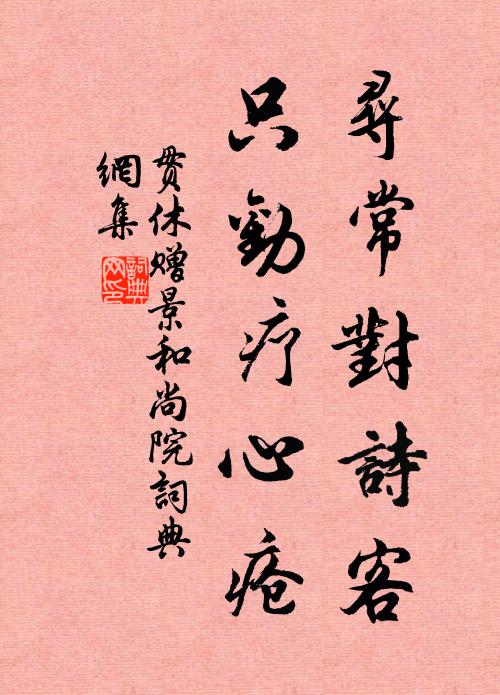 尋常對詩客
只勸疗心瘡
贯休赠景和尚院詞典
網集
詞典
网印